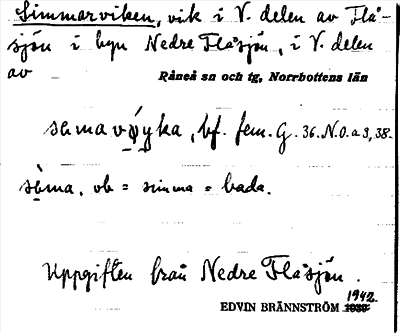 Simmarviken, vik i V. delen av Flå-
sjön i byn Nedre Flåsjön, i V. delen
av Råneå sn och tg, Norrbottens län
bf. fem. G. 36. N.O. a 3, 38.
vb = simma = bada.
Uppgiften från Nedre Flåsjön.
1942
EDVIN BRÄNNSTRÖM 1939